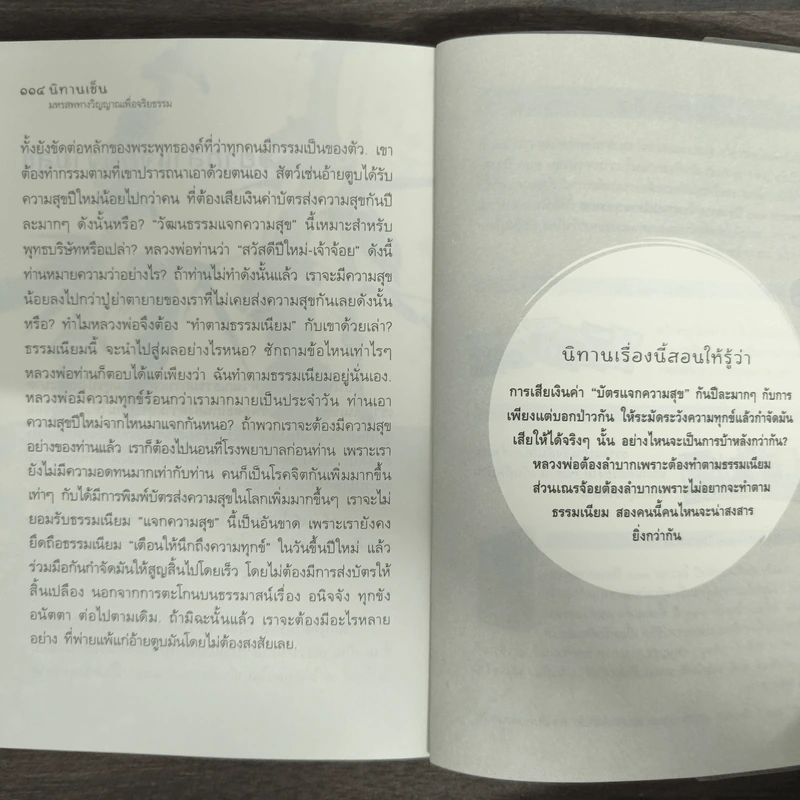 ๑๑๔ นิทานเซ็น
มหรสพทางวิญญาณเพื่อจริยธรรม
ทั้งยังขัดต่อหลักของพระพุทธองค์ที่ว่าทุกคนมีกรรมเป็นของตัว. เขา
ต้องทำกรรมตามที่เขาปรารถนาเอาด้วยตนเอง สัตว์เช่นอ้ายตูบได้รับ
ความสุขปีใหม่น้อยไปกว่าคน ที่ต้องเสียเงินค่าบัตรส่งความสุขกันปี
ละมากๆ ดังนั้นหรือ? "วัฒนธรรมแจกความสุข" นี้เหมาะสำหรับ
พุทธบริษัทหรือเปล่า? หลวงพ่อท่านว่า "สวัสดีปีใหม่-เจ้าจ้อย" ดังนี้
ท่านหมายความว่าอย่างไร? ถ้าท่านไม่ทำดังนั้นแล้ว เราจะมีความสุข
น้อยลงไปกว่าปู่ย่าตายายของเราที่ไม่เคยส่งความสุขกันเลยดังนั้น
หรือ? ทำไมหลวงพ่อจึงต้อง "ทำตามธรรมเนียม" กับเขาด้วยเล่า?
ธรรมเนียมนี้ จะนำไปสู่ผลอย่างไรหนอ? ซักถามข้อไหนเท่าไรๆ
หลวงพ่อท่านก็ตอบได้แต่เพียงว่า ฉันทำตามธรรมเนียมอยู่นั่นเอง.
หลวงพ่อมีความทุกข์ร้อนกว่าเรามากมายเป็นประจำวัน ท่านเอา
ความสุขปีใหม่จากไหนมาแจกกันหนอ? ถ้าพวกเราจะต้องมีความสุข
อย่างของท่านแล้ว เราก็ต้องไปนอนที่โรงพยาบาลก่อนท่าน เพราะเรา
ยังไม่มีความอดทนมากเท่ากับท่าน คนก็เป็นโรคจิตกันเพิ่มมากขึ้น
เท่าๆ กับได้มีการพิมพ์บัตรส่งความสุขในโลกเพิ่มมากขึ้นๆ เราจะไม่
ยอมรับธรรมเนียม "แจกความสุข" นี้เป็นอันขาด เพราะเรายังคง
ยึดถือธรรมเนียม "เตือนให้นึกถึงความทุกข์" ในวันขึ้นปีใหม่ แล้ว
ร่วมมือกันกำจัดมันให้สูญสิ้นไปโดยเร็ว โดยไม่ต้องมีการส่งบัตรให้
สิ้นเปลือง นอกจากการตะโกนบนธรรมาสน์เรื่อง อนิจจัง ทุกขัง
อนัตตา ต่อไปตามเดิม. ถ้ามิฉะนั้นแล้ว เราจะต้องมีอะไรหลาย
อย่าง ที่พ่ายแพ้แก่อ้ายตูบมันโดยไม่ต้องสงสัยเลย.
นิทานเรื่องนี้สอนให้รู้ว่า
การเสียเงินค่า "บัตรแจกความสุข" กันปีละมากๆ กับการ
เพียงแต่บอกป่าวกัน ให้ระมัดระวังความทุกข์แล้วกำจัดมัน
เสียให้ได้จริงๆ นั้น อย่างไหนจะเป็นการบ้าหลังกว่ากัน?
หลวงพ่อต้องลำบากเพราะต้องทำตามธรรมเนียม
ส่วนเณรจ้อยต้องลำบากเพราะไม่อยากจะทำตาม
ธรรมเนียม สองคนนี้คนไหนจะน่าสงสาร
ยิ่งกว่ากัน